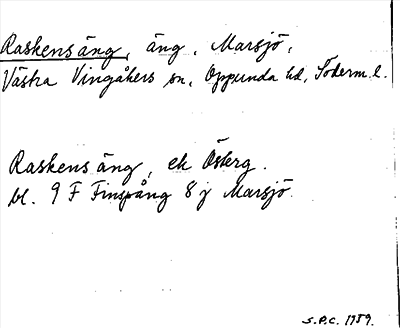 Raskensäng, äng, Marsjö,
Västra Vingåkers sn, Oppunda hd, Söderm. l.
Raskensäng, ek Österg.
bl. 9 F Finspång 8 j Marsjö.
S.P.C. 1959.